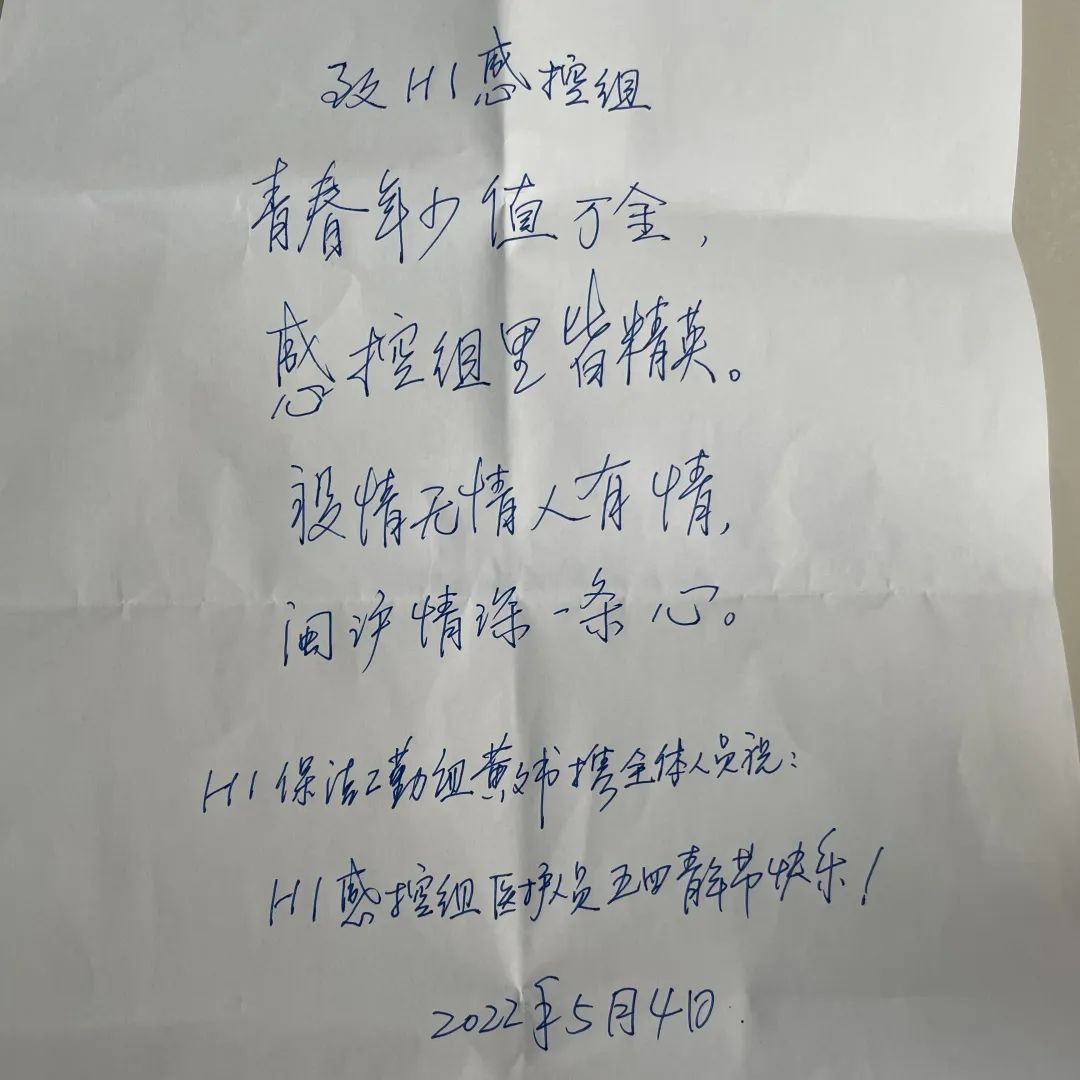 致H1感控组
青春年少值万金，
感控组里皆精英。
疫情无情人有情，
闽沪情深一条心。
H1保洁工勤组黄文书携全体人员祝：
H1感控组医护人员五四青年节快乐！
2022年5月4日.